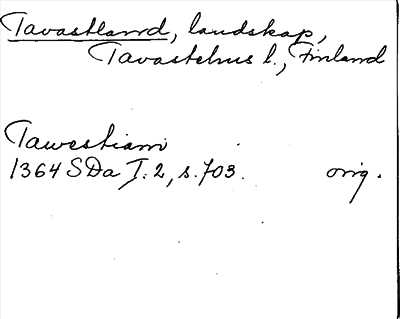 Tavastland, landskap,
Tavastehus l., Finland
Tawestiam
1364 SDa I: 2, s. 703. orig.